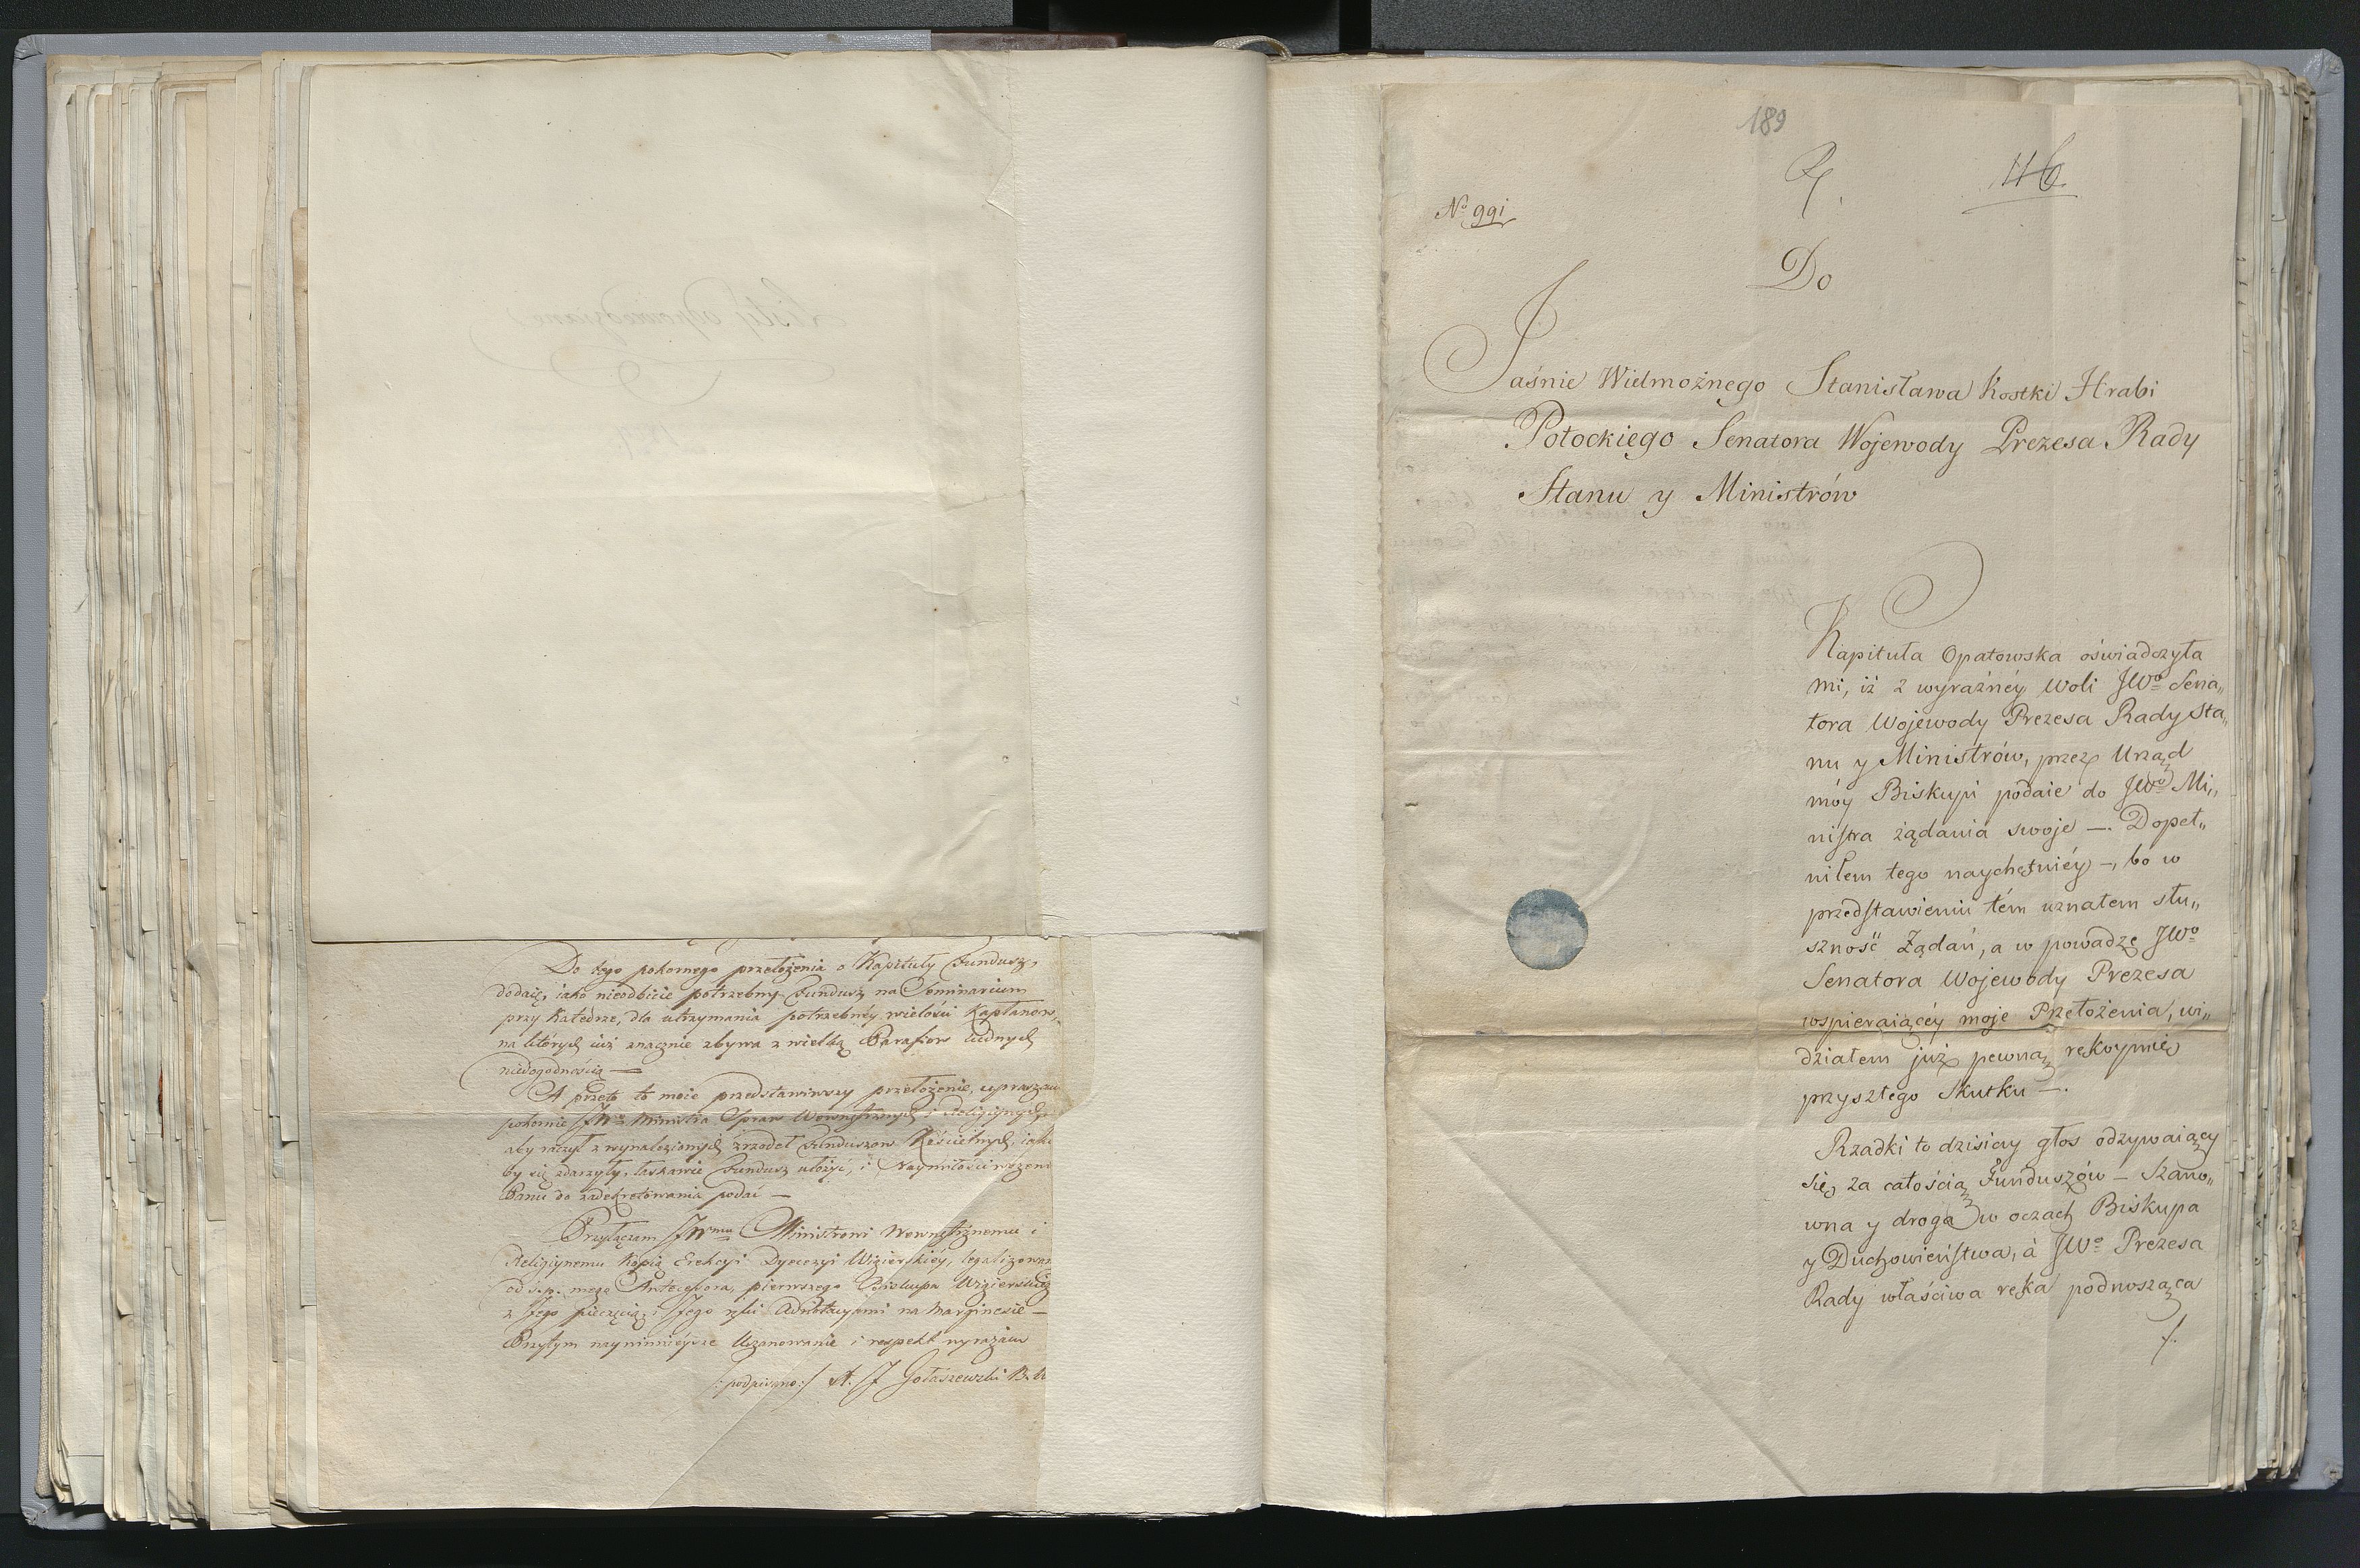 Do tego pokornego przełożenia o Kapituły Fundusz,
dodaię, iako nieodbicie potrzebny Fundusz na Seminarium
przy Katedrze, dla utrzymania potrzebnéy wielości Kapłanow,
na których iuż znacznie zbywa z wielką Parafiow ludnych
niedogodnością —
A przeto to moie przedstawiwszy przełożenie, upraszam
pokornie JW° Ministra Spraw Wewnętrznych i Religiynych,
aby raczył z wynalezionych źrzodeł Funduszow Kościelnych, iakie
by się zdarzyły, łaskawie Fundusz ułożyć, i Naymiłościwszemu
Panu do zadekretowania podać —
Przyłączam JWmu Ministrowi Wewnętrznemu i
Religiynemu Kopią Erekcyi Dyecezyi Wigierskiéy, legalizowaną
od ś.p. mego Antecessora, pierwszego Biskupa Wigierskiego
z Jego pieczęcią i Jego ręki Adnotacyami na Marginesie —
Przytym naywinnieysze Uszanowanie i respekt wyrażam
/:podpisano:/ A. J Gołaszewski B. W
189
46
N° 991
Do
Jaśnie Wielmożnego Stanisława Kostki Hrabi
Potockiego Senatora Wojewody Prezesa Rady
Stanu y Ministrów
Kapituła Opatowska oświadczyła
mi, iż z wyraźnéy Woli JWo Sena„
tora Wojewody Prezesa Rady Sta„
nu y Ministrów, przez Urząd
móy Biskupi podaie do JWo Mi„
nistra żądania swoje —. Dopeł„
niłem tego naychętniéy —, bo w
przedstawieniu tém uznałem słu„
szność Żądań, a w powadze JWo
Senatora Wojewody Prezesa
wspieraiącéy moje Przełożenia, wi„
działem już pewną rękoymię
przyszłego Skutku —.
Rzadki to dzisiay głos odzywaiący
się za całością Funduszów — Szano„
wna y droga w oczach Biskupa
y Duchowieństwa, à JWo Prezesa
Rady właściwa ręka podnosząca
./.